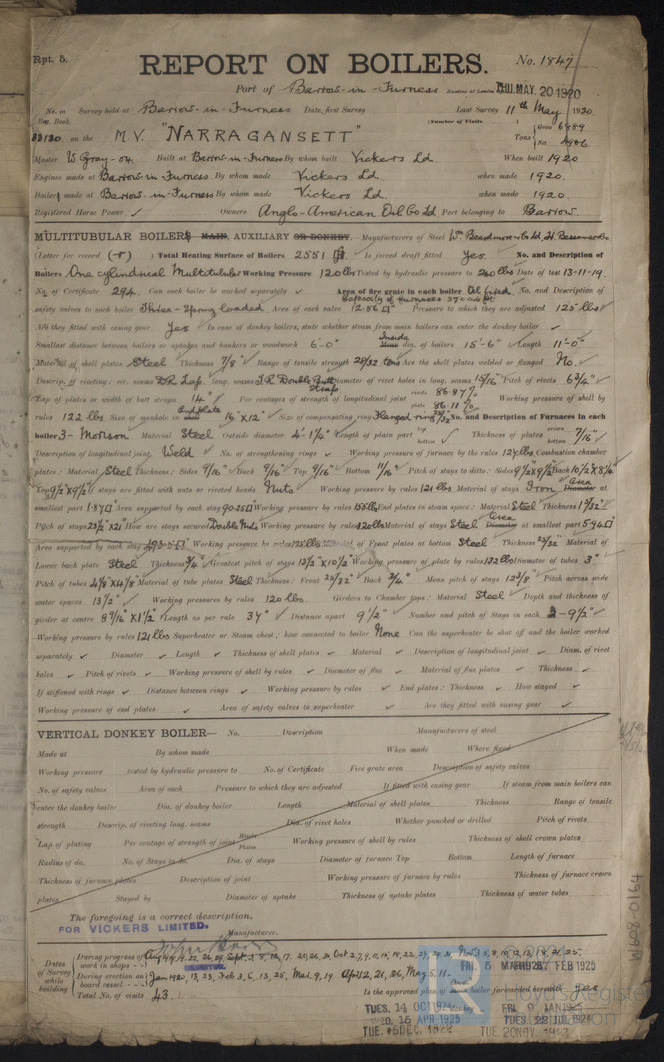 Rpt. 5.
REPORT ON BOILERS.
No. 1847
Port of Barrow-in-Furness
THU. MAY. 20 1920
No. in Reg. Book. Survey held at Barrow-in-Furness Date, first Survey Last Survey 11th May 1920
(Number of Visits
33130 on the M.V. "NARRAGANSETT" Tons { Gross 6989
Master W. Gray-04. Built at Barrow-in-Furness By whom built Vickers Ld. When built 1920
Engines made at Barrow-in-Furness By whom made Vickers Ld. when made 1920.
Boilers made at Barrow-in-Furness By whom made Vickers Ld when made 1920.
Registered Horse Power ✓ Owners Anglo-American Oil Co Ld Port belonging to Barrow.
MULTITUBULAR BOILERS MAIN, AUXILIARY OR DONKEY. — Manufacturers of Steel Wm Beardmore & Co Ld,
(Letter for record (r) Total Heating Surface of Boilers 2551 Is forced draft fitted Yes. No. and Description of
Boilers One cylindrical Multitubular Working Pressure 120 lbs Tested by hydraulic pressure to 240 lbs Date of test 13-11-19.
No. of Certificate 294. Can each boiler be worked separately ✓ Area of fire grate in each boiler Oil fired. No. and Description of
Capacity of furnaces 370 cub ft
safety valves to each boiler Three-Spring loaded. Area of each valve 12.56 □" Pressure to which they are adjusted 125 lbs
Are they fitted with easing gear Yes ✓ In case of donkey boilers, state whether steam from main boilers can enter the donkey boiler
Smallest distance between boilers or uptakes and bunkers or woodwork 6'-0" Inside dia. of boilers 15'-6" Length 11'-0"
Material of shell plates Steel Thickness 7/8" Range of tensile strength 28/32 tons Are the shell plates welded or flanged No.
Descrip. of riveting: cir. seams D.R. Lap. long. seams T.R. Double Butt Strap Diameter of rivet holes in long. seams 15/16" Pitch of rivets 6 3/4"
Lap of plates or width of butt straps 14" Per centages of strength of longitudinal joint rivets 86.87% plate 86.11% Working pressure of shell by
rules 122 lbs Size of manhole in End plate 16"x12" Size of compensating ring Flanged ring No. and Description of Furnaces in each
boiler 3- Morison Material Steel Outside diameter 4'-1 1/4" Length of plain part top bottom Thickness of plates crown bottom 7/16"
Description of longitudinal joint Weld No. of strengthening rings ✓ Working pressure of furnace by the rules 124 lbs Combustion chamber
plates: Material Steel Thickness: Sides 9/16" Back 9/16" Top 9/16" Bottom 11/16" Pitch of stays to ditto: Sides 9 1/2"x9 1/2" Back 10 1/2"x8 1/2"
Top 9 1/2"x9 1/2" If stays are fitted with nuts or riveted heads Nuts Working pressure by rules 121 lbs Material of stays Iron Area Diameter at
smallest part 1.87□" Area supported by each stay 90.25□" Working pressure by rules 155 lbs End plates in steam space: Material Steel Thickness 1 9/32"
Pitch of stays 23 1/2"x21" How are stays secured Double Nuts Working pressure by rules 120 lbs Material of stays Steel Area Diameter at smallest part 5.94□"
Area supported by each stay 493.5□" Working pressure by rules 125 lbs Material of Front plates at bottom Steel Thickness 25/32" Material of
Lower back plate Steel Thickness 3/4" Greatest pitch of stays 13 1/2"x10 1/2" Working pressure of plate by rules 132 lbs Diameter of tubes 3"
Pitch of tubes 4 1/8"x4 1/8" Material of tube plates Steel Thickness: Front 25/32" Back 3/4" Mean pitch of stays 12 4/8" Pitch across wide
water spaces 13 1/2" Working pressures by rules 120 lbs. Girders to Chamber tops: Material Steel Depth and thickness of
girder at centre 8 9/16"x1 1/2" Length as per rule 34" Distance apart 9 1/2" Number and pitch of Stays in each 2-9 1/2"
Working pressure by rules 121 lbs Superheater or Steam chest; how connected to boiler None Can the superheater be shut off and the boiler worked
separately ✓ Diameter ✓ Length ✓ Thickness of shell plates ✓ Material ✓ Description of longitudinal joint ✓ Diam. of rivet
holes ✓ Pitch of rivets ✓ Working pressure of shell by rules ✓ Diameter of flue ✓ Material of flue plates ✓ Thickness ✓
If stiffened with rings ✓ Distance between rings ✓ Working pressure by rules ✓ End plates: Thickness ✓ How stayed ✓
Working pressure of end plates ✓ Area of safety valves to superheater ✓ Are they fitted with easing gear ✓
VERTICAL DONKEY BOILER— No. Description Manufacturers of steel
Made at By whom made When made Where fixed
Working pressure tested by hydraulic pressure to No. of Certificate Fire grate area Description of safety valves
No. of safety valves Area of each Pressure to which they are adjusted If fitted with easing gear If steam from main boilers can
enter the donkey boiler Dia. of donkey boiler Length Material of shell plates Thickness Range of tensile
strength Descrip. of riveting long. seams Dia. of rivet holes Whether punched or drilled Pitch of rivets
Lap of plating Per centage of strength of joint Rivets Plates Working pressure of shell by rules Thickness of shell crown plates
Radius of do. No. of Stays to do. Dia. of stays Diameter of furnace Top Bottom Length of furnace
Thickness of furnace plates Description of joint Working pressure of furnace by rules Thickness of furnace crown
plates Stayed by Diameter of uptake Thickness of uptake plates Thickness of water tubes
The foregoing is a correct description,
FOR VICKERS LIMITED. Manufacturer.
Dates of Survey while building
During progress of work in shops - -
During erection on board vessel - - -
Jan 1920, 13, 23, Feb 3, 6, 13, 25, Mar. 9, 19, Apr 12, 21, 26, May 5, 11.
Total No. of visits 43
Is the approved plan of boiler forwarded herewith Yes
27 FEB 1925
TUES. 14 OCT 1924
FRI. 9 JAN 1925
15 APR 1925
TUES. 22 JUL 1924
TUE. 5 DEC. 1922
TUE 20 NOV. 1923
© 2021
Lloyd's Register
Foundation
W809-0164